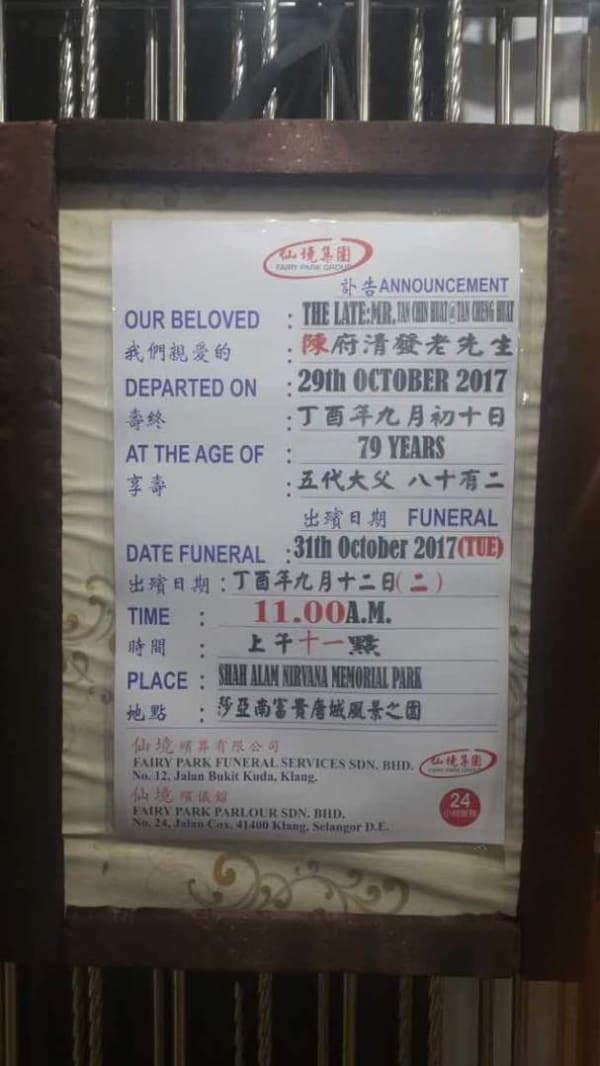 仙境集團
FAIRY PARK GROUP
訃告ANNOUNCEMENT
OUR BELOVED : THE LATE:MR. TAN CHIN HUAT@TAN CHENG HUAT
我們親愛的 陳府清發老先生
DEPARTED ON : 29th OCTOBER 2017
壽終 : 丁酉年九月初十日
AT THE AGE OF : 79 YEARS
享壽 : 五代大父 八十有二
出殯日期 FUNERAL
DATE FUNERAL :31th October 2017(TUE)
出殯日期 : 丁酉年九月十二日(二)
TIME : 11.00A.M.
時間 : 上午十一點
PLACE : SHAH ALAM NIRVANA MEMORIAL PARK
地點 : 莎亞南富貴唐城風景之園
仙境殯葬有限公司
FAIRY PARK FUNERAL SERVICES SDN. BHD.
No. 12, Jalan Bukit Kuda, Klang.
仙境集團
FAIRY PARK GROUP
仙境殯儀館
FAIRY PARK PARLOUR SDN. BHD.
No. 24, Jalan Cox, 41400 Klang, Selangor D.E.
24
小時服務